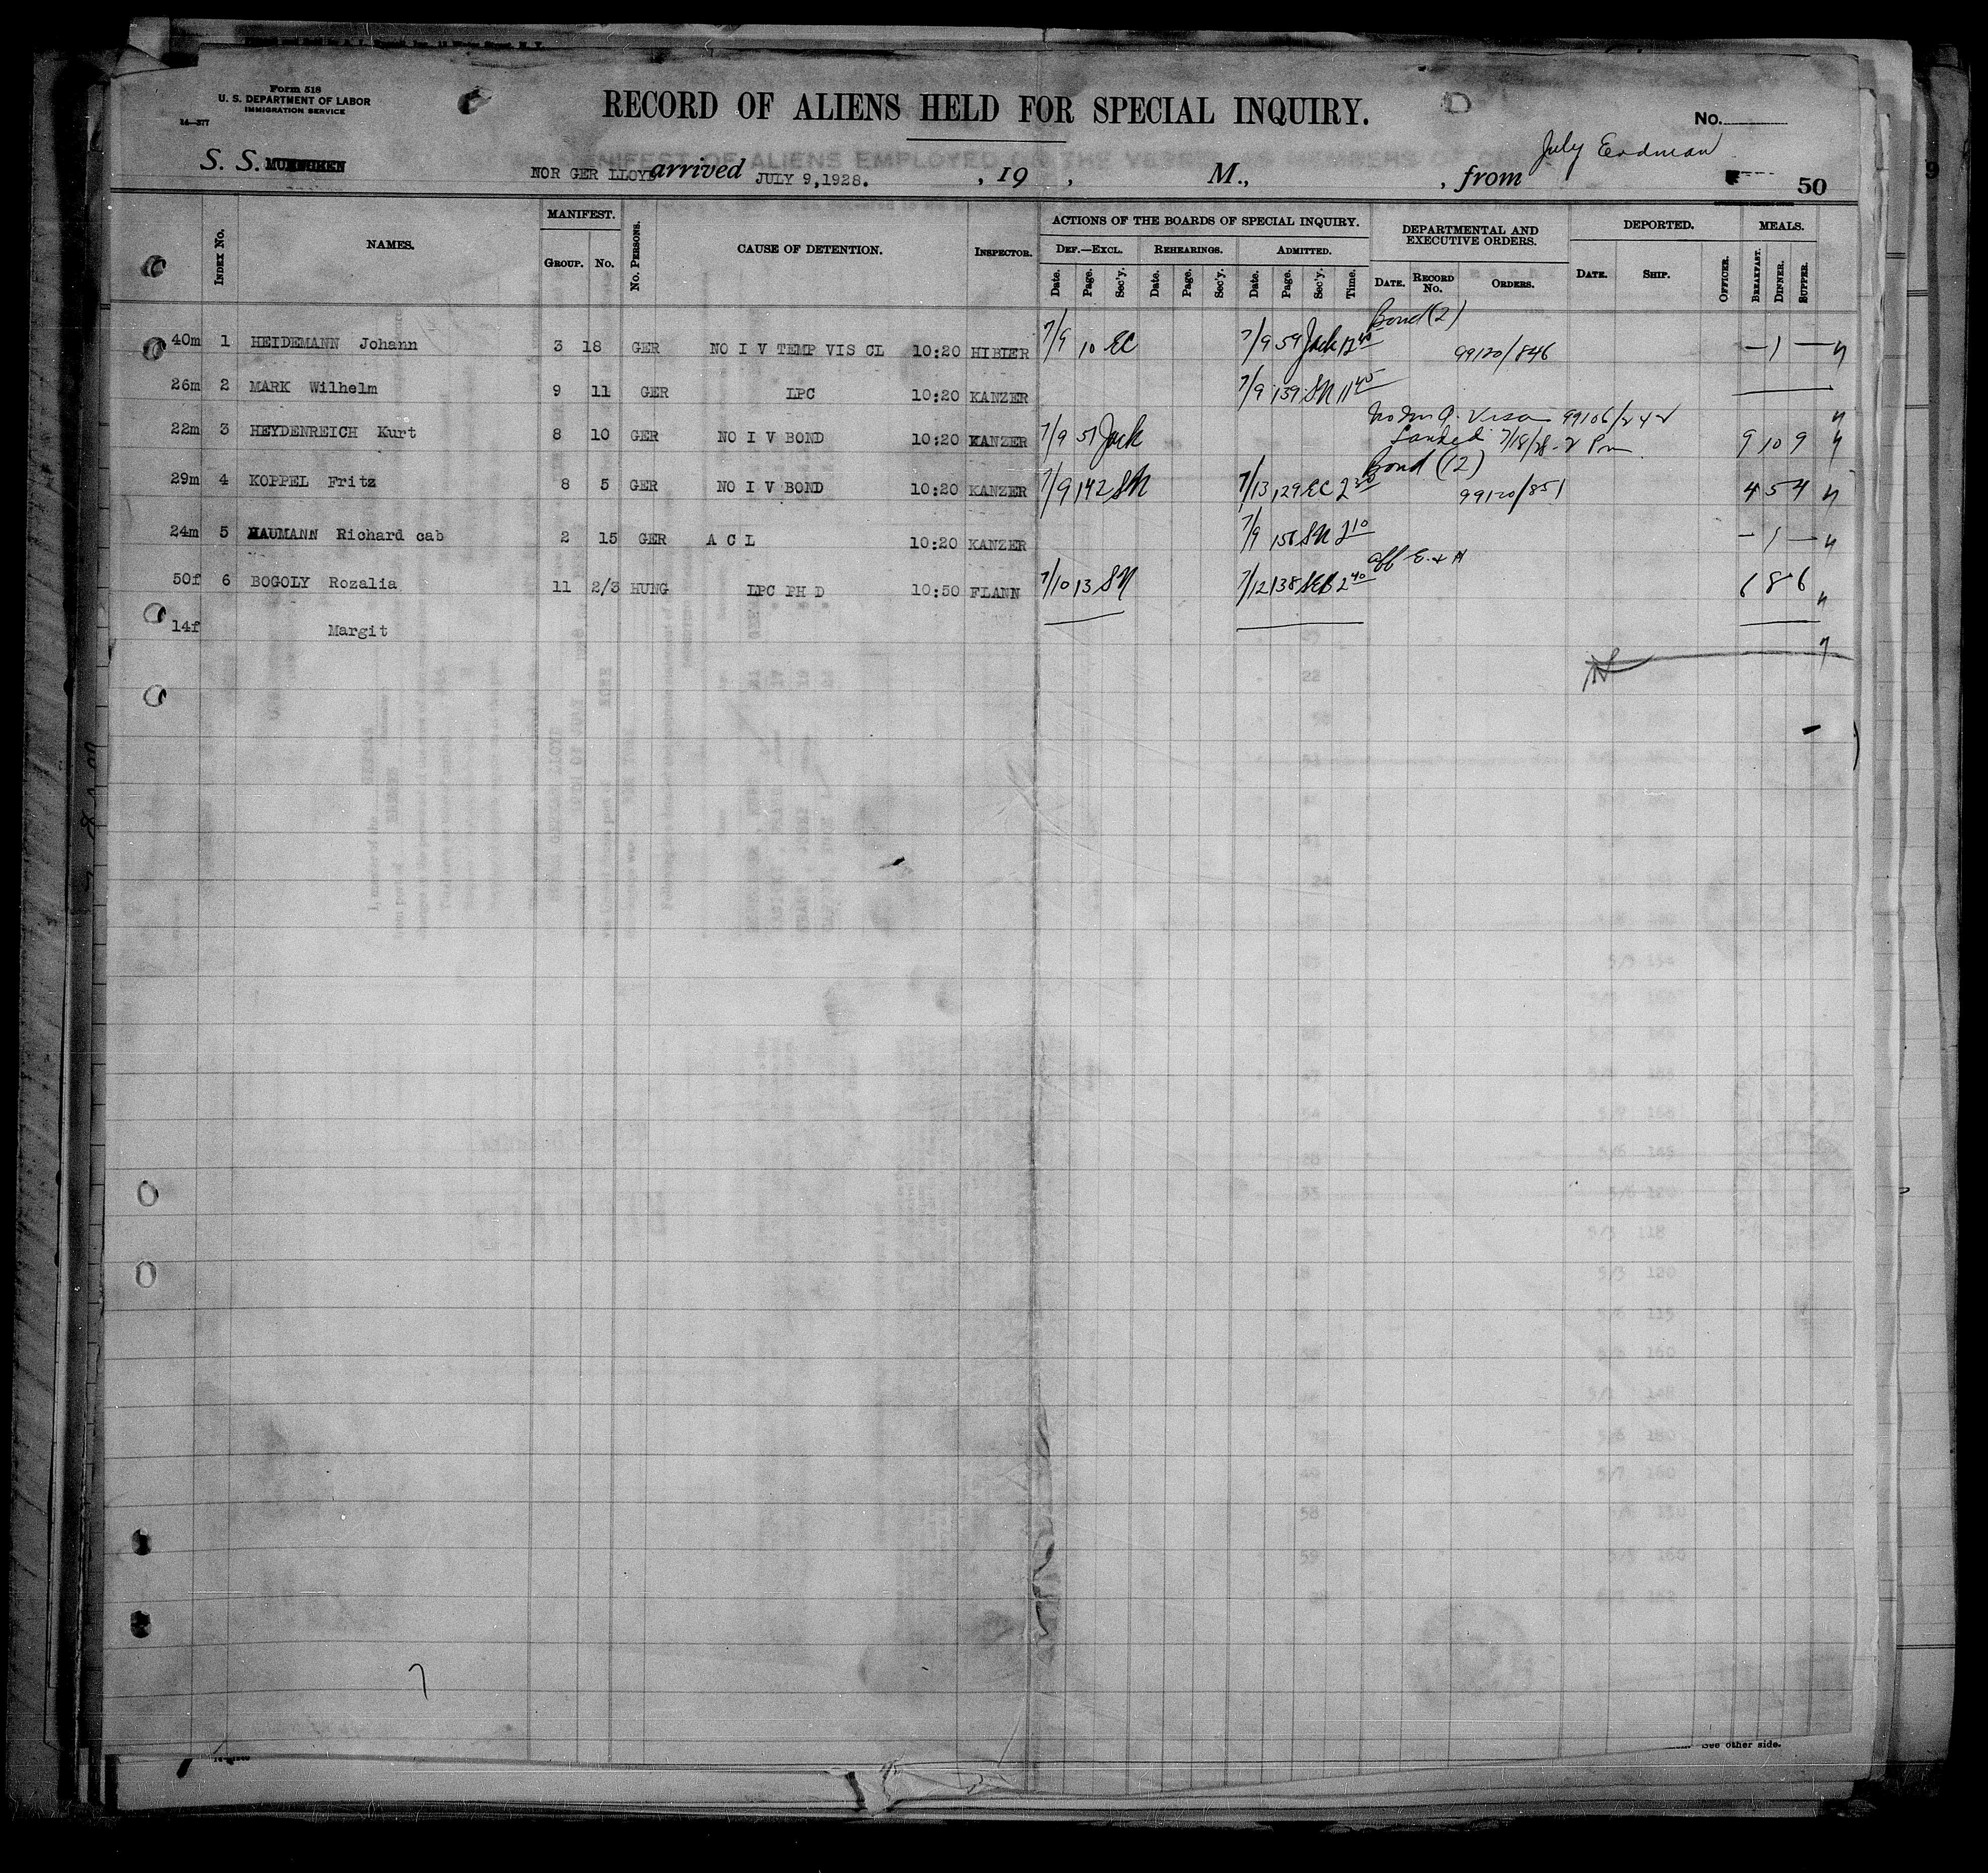 Form 518
U. S. DEPARTMENT OF LABOR
IMMIGRATION SERVICE
14—377
RECORD OF ALIENS HELD FOR SPECIAL INQUIRY.
No.
S. S. MUENCHEN NOR GER LLOYD arrived JULY 9,1928. , 19 , M., , from July Erdman
50
Index No. NAMES. MANIFEST. Group. No. No. Persons. CAUSE OF DETENTION. Inspector.
ACTIONS OF THE BOARDS OF SPECIAL INQUIRY. Def.—Excl. Rehearings. Admitted.
Date. Page. Sec'y. Date. Page. Sec'y. Date. Page. Sec'y. Time.
DEPARTMENTAL AND EXECUTIVE ORDERS. Date. Record No. Orders.
DEPORTED. Date. Ship. Officer.
MEALS. Breakfast. Dinner. Supper.
Bond (2)
40m 1 HEIDEMANN Johann 3 18 GER NO I V TEMP VIS CL 10:20 HIBIER 7/9 10 EC 7/9 59 Jack 12 40 99120/846 — 1 —
26m 2 MARK Wilhelm 9 11 GER LPC 10:20 KANZER 7/9 139 SN 11 45
Visa 99106/242
22m 3 HEYDENREICH Kurt 8 10 GER NO I V BOND 10:20 KANZER 7/9 51 Jack Landed 7/18/28 - 2 Pm 9 10 9
Bond (12)
29m 4 KOPPEL Fritz 8 5 GER NO I V BOND 10:20 KANZER 7/9 142 SN 7/13 129 EC 2 30 99120/851 4 5 4
24m 5 HAUMANN Richard cab 2 15 GER A C L 10:20 KANZER 7/9 156 SN 2 10 — 1 —
aff E. + H
50f 6 BOGOLY Rozalia 11 2/3 HUNG LPC PH D 10:50 FLANN 7/10 13 SN 7/12 138 SEB 2 40 6 8 6
14f Margit
7
See other side.